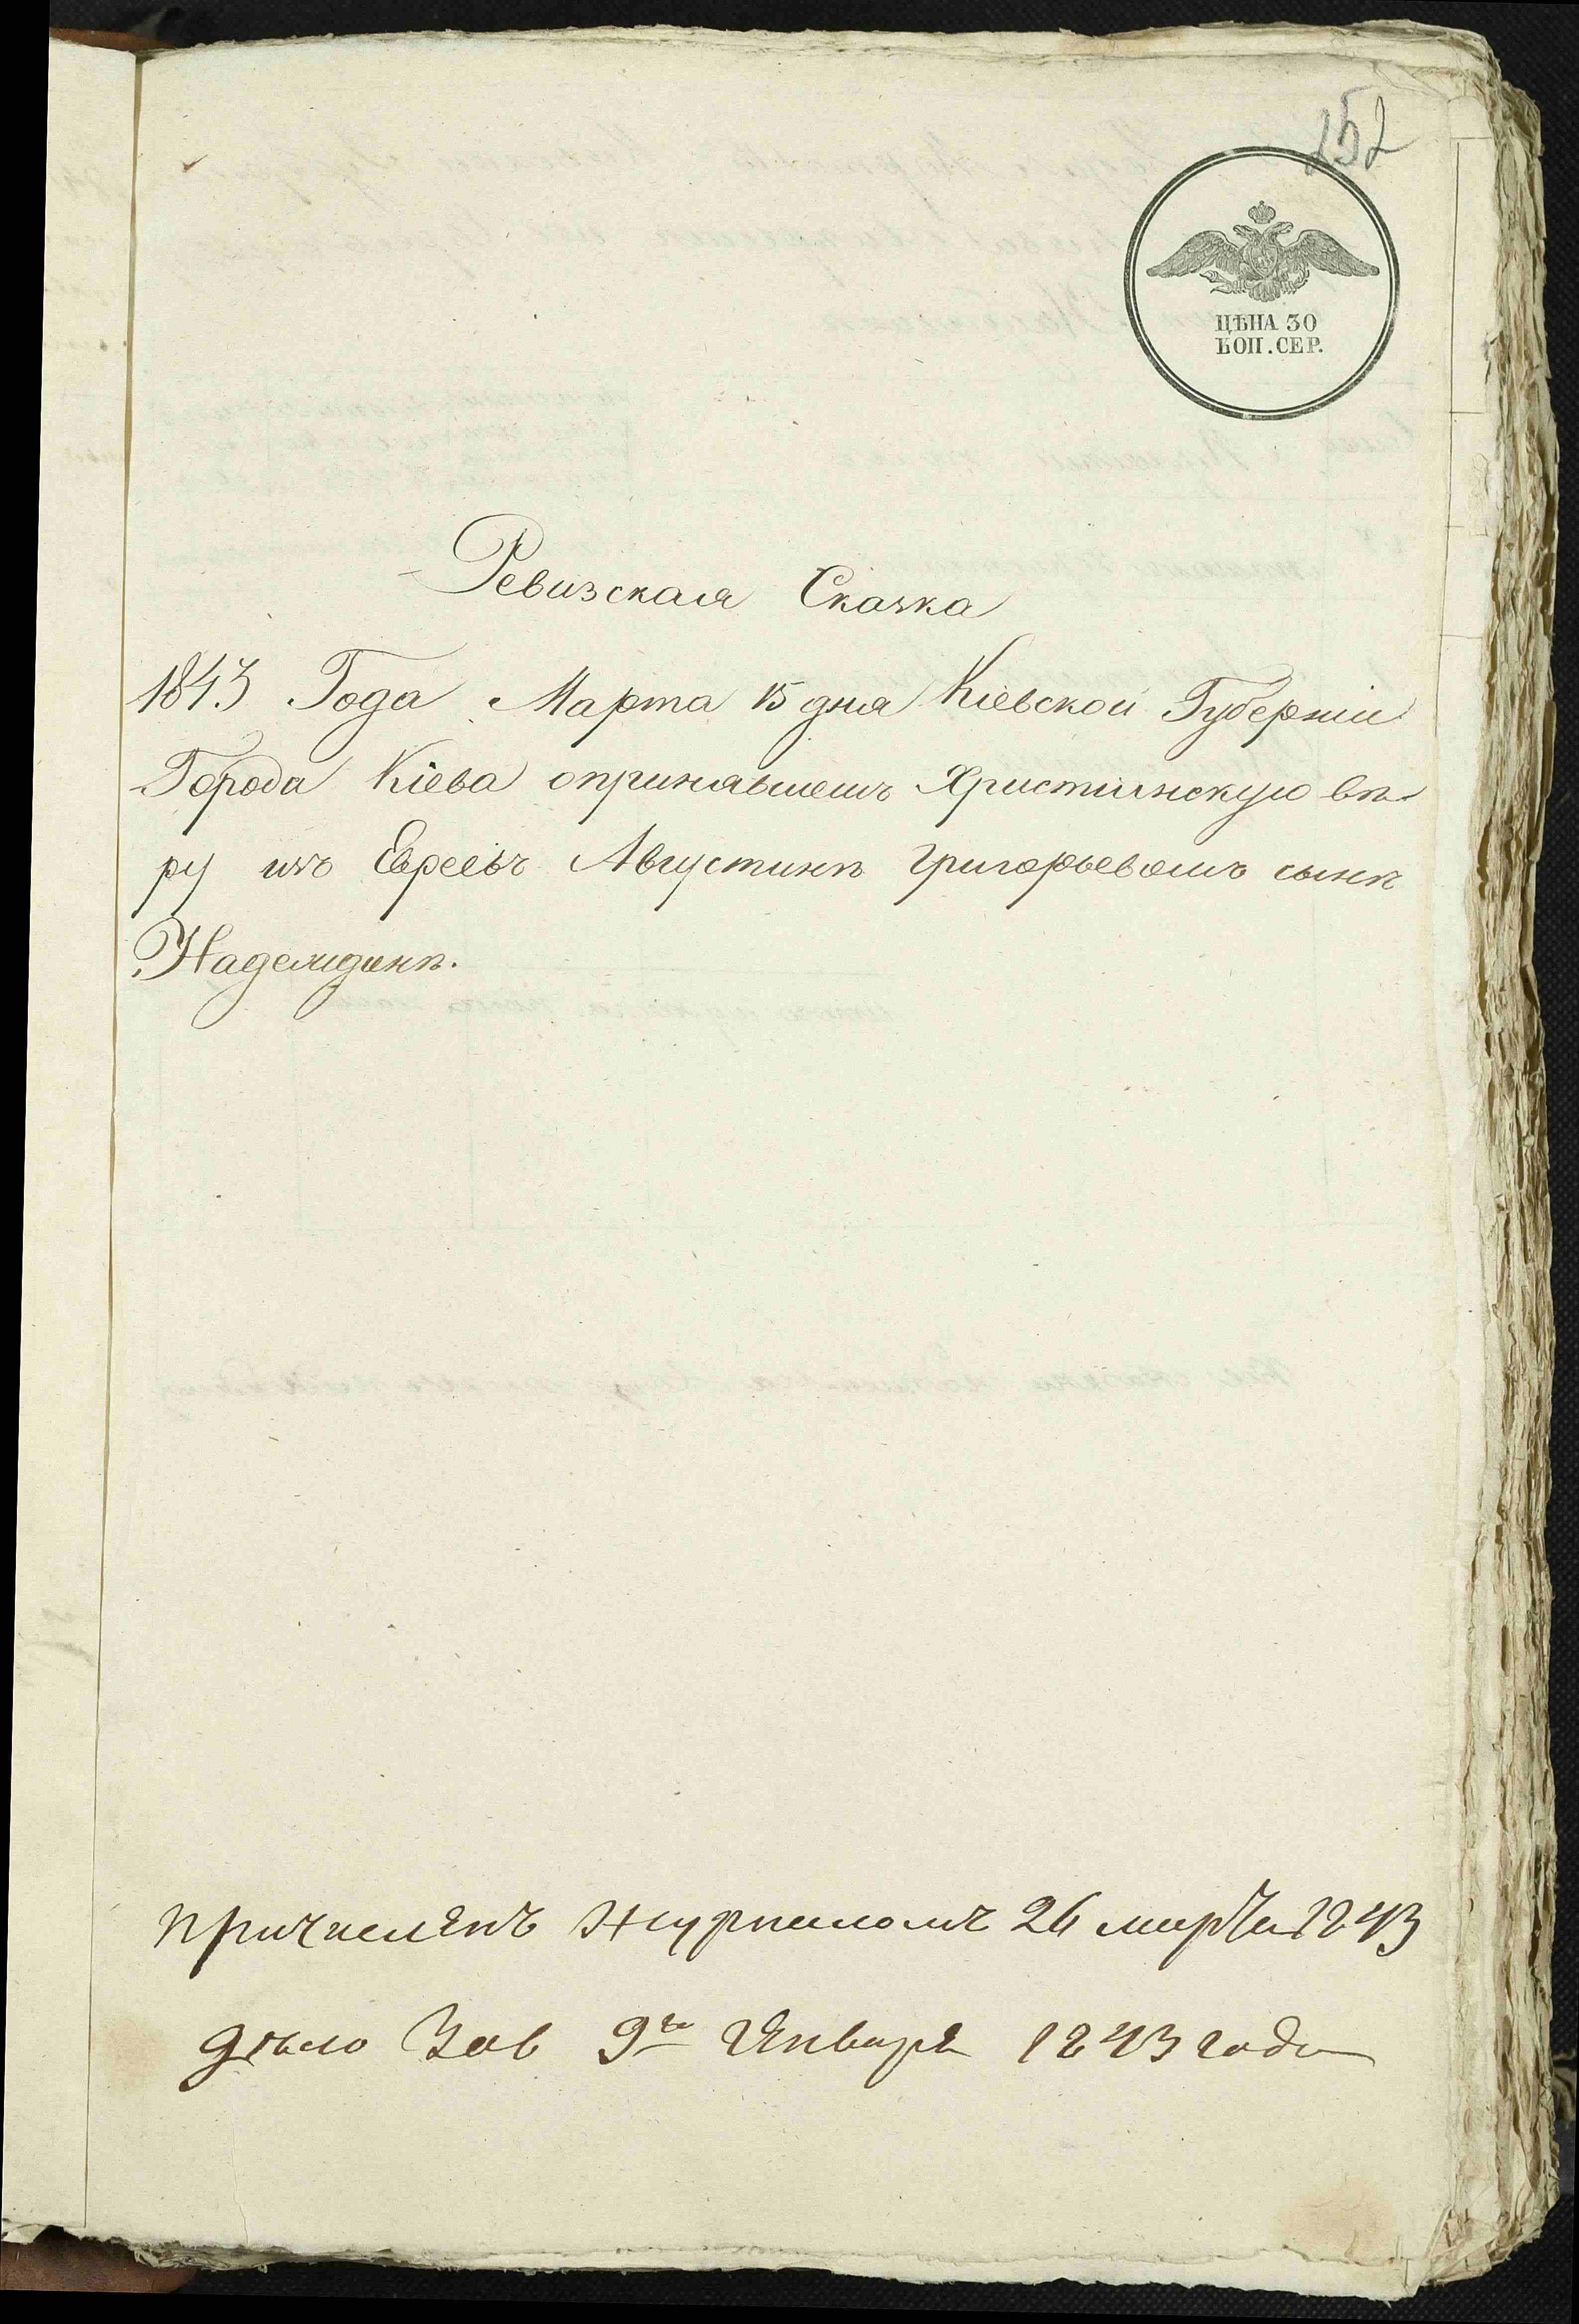 252
ЦѢНА 30
КОП. СЕР.
Ревизская Сказка
1843 Года Марта 15 дня Кіевской Губерніи
Города Кіева опринявшемъ Христіянскую вѣ
ру изъ Евреевъ Августинѣ Григорьевомъ сынѣ
Надеждинѣ.
причисленъ журналомъ 26 марта 1843
дѣло 9го Января 1843 года